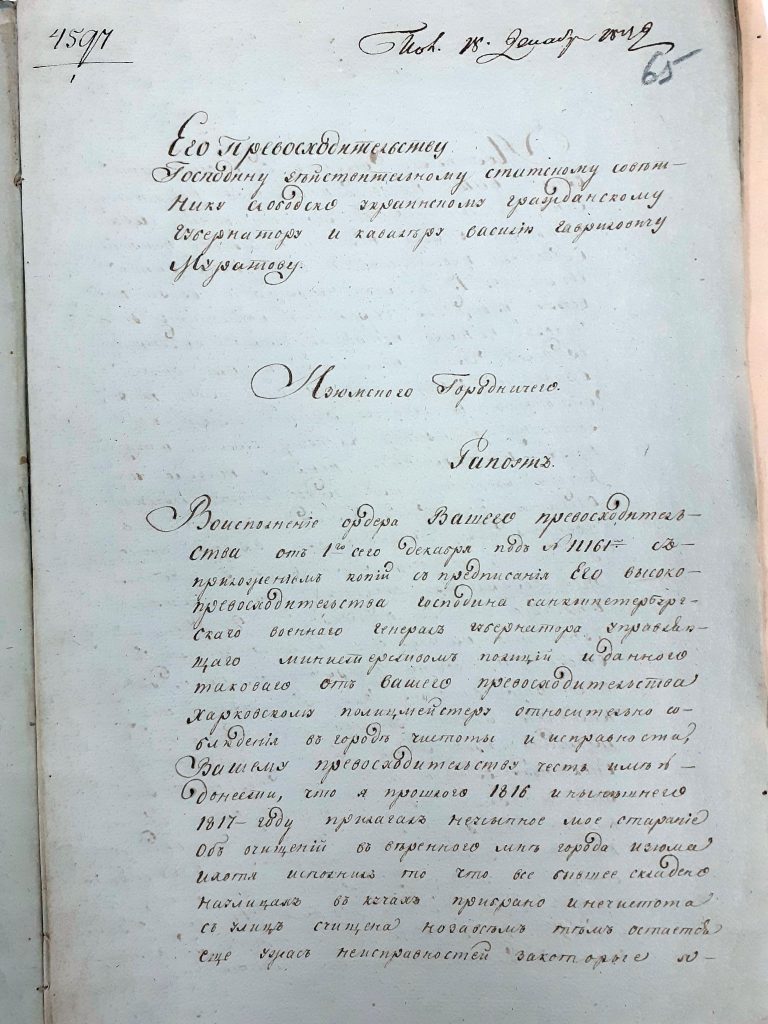 4597
Пол. 18. Декабр 1817
65
Его Превосходительству
Господину действительному статскому совѣт-
нику слободско украинскому гражданскому
губернатору и кавалеру Василию Гавриловичу
Муратову.
Изюмского Городничего.
Рапортъ.
Воисполненіе ордера Вашего превосходитель-
ства отъ 1го сего декабря подъ № 11161м съ
приложеніемъ копій съ предписанія Его высоко-
превосходительства господина санктпетербург-
скаго военнаго генералъ губернатора управляю-
щаго министерствомъ полиціи и данного
таковаго отъ вашего превосходительства
харковскому полицмейстеру относительно со-
блюденія въ городѣ чистоты и исправности,
Вашему превосходительству честь имѣю
донести, что я прошлого 1816 и нынешнего
1817 году прилагалъ неусыпное мое стараніе
Объ очищеніи въ вѣренного мнѣ города изюма
ихотя исполнилъ то что все бывшее складено
наулицахъ въ кучахъ прибрано инечистота
съ улицъ счищена нозавсемъ темъ остается
еще ужасъ неисправностей закоторые я-